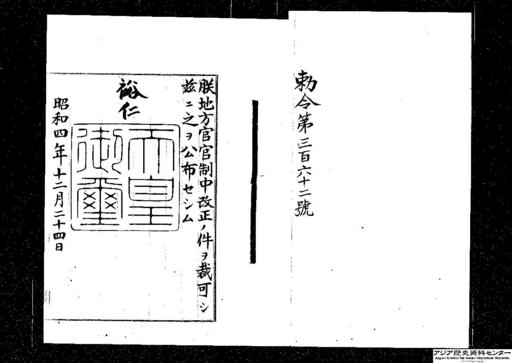 勅令第三百六十二號
朕地方官官制中改正ノ件ヲ裁可シ
茲ニ之ヲ公布セシム
裕仁
天皇
御璽
昭和四年十二月二十四日
アジア歴史資料センター
Japan Center for Asian Historical Records